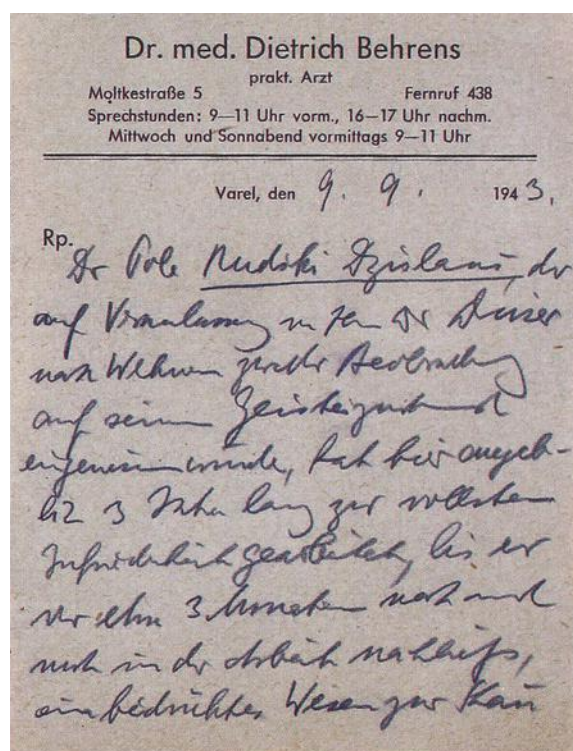 Dr. med. Dietrich Behrens
prakt. Arzt
Moltkestraße 5 Fernruf 438
Sprechstunden: 9—11 Uhr vorm., 16—17 Uhr nachm.
Mittwoch und Sonnabend vormittags 9—11 Uhr
Varel, den 9. 9. 1943.
Rp.
Der Pole Rudski Dzislaus, der
auf Veranlassung von Dr
nach Wehnen zwecks Beobachtung
auf seinen Geisteszustand
eingewiesen wurde, hat hier angeb-
lich 3 Jahre lang zur vollsten
Zufriedenheit gearbeitet, bis er
vor etwa 3 Monaten nach und
nach in der Arbeit nachließ,
ein bedrücktes Wesen zur Schau